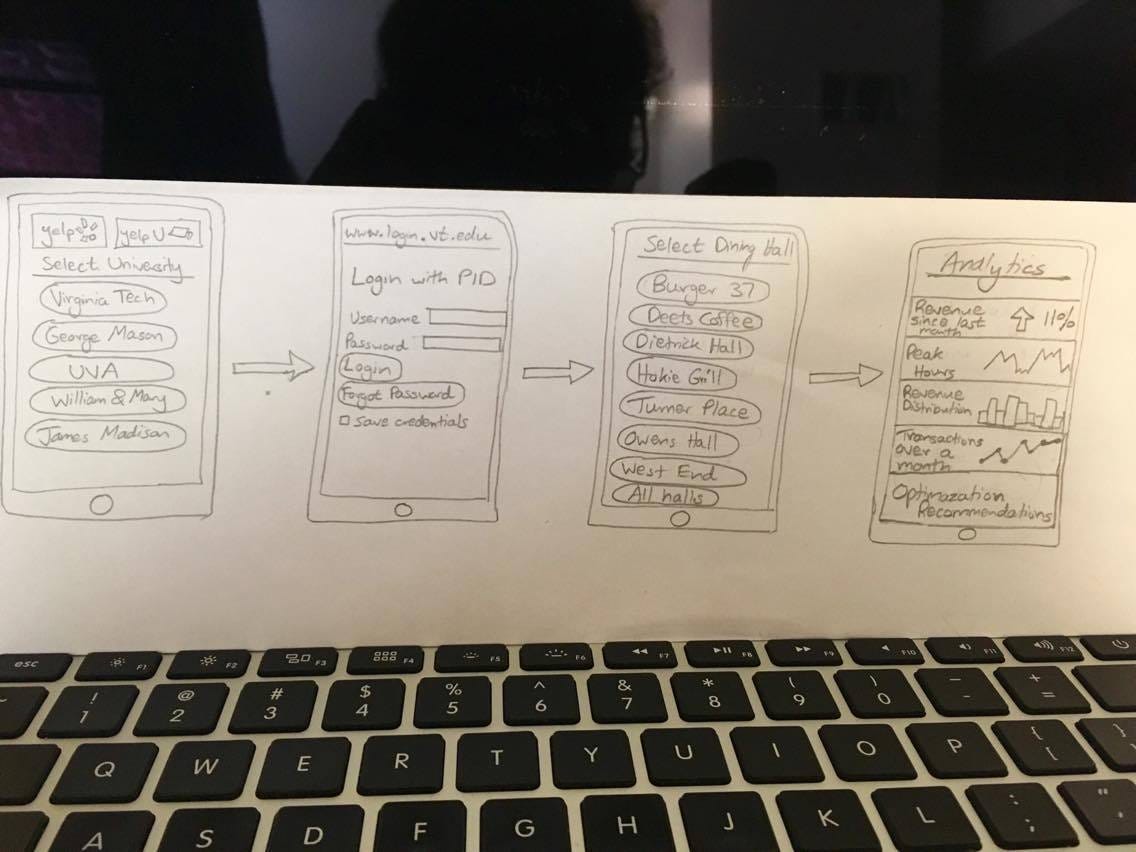 yelp yelp U
Select University
Virginia Tech
George Mason
UVA
William & Mary
James Madison
www.login.vt.edu
Login with PID
Username
Password
Login
Forgot Password
Save credentials
Select Dining Hall
Burger 37
Deets Coffee
Dietrick Hall
Hokie Grill
Turner Place
Owens Hall
West End
All halls
Analytics
Revenue
since last
month
11%
Peak
Hours
Revenue
Distribution
Transactions
over a
month
Optimazation
Recommendations
esc F1 F2 F3 F4 F5 F6 F7 F8 F9 F10 F11 F12
! @ # $ % ^ & * ( ) _ +
1 2 3 4 5 6 7 8 9 0 - =
Q W E R T Y U I O P { [ }
A S D F G H J K L : ; "